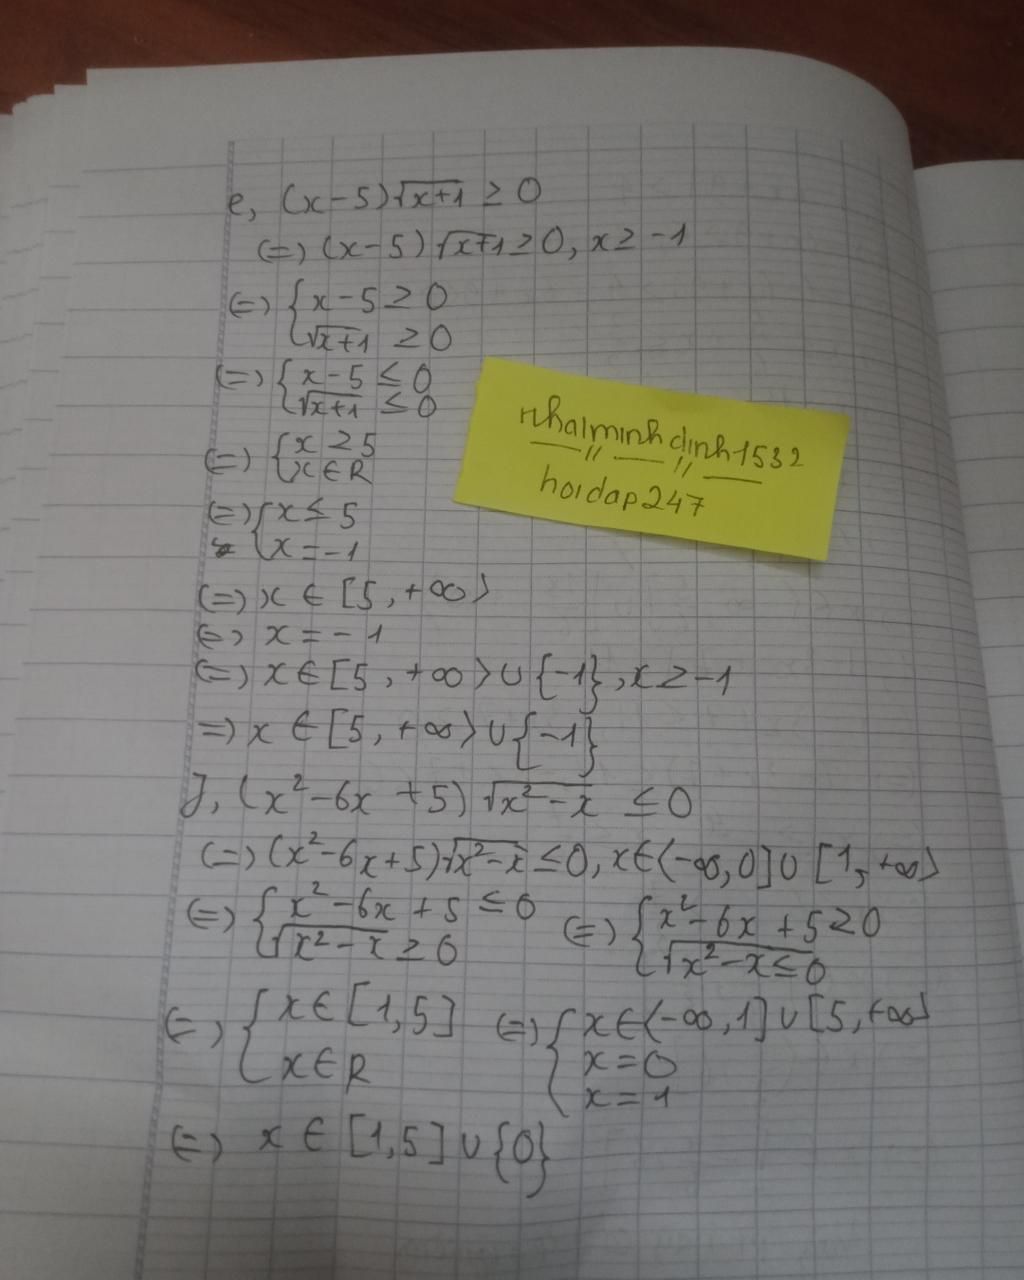 e, (x-5)√x+1 ≥ 0
(=) (x-5)√x+1 ≥ 0, x ≥ -1
(=) { x-5 ≥ 0
√x+1 ≥ 0
(=) { x-5 ≤ 0
√x+1 ≤ 0
(=) { x ≥ 5
x ∈ R
(=) { x ≤ 5
x = -1
(=) x ∈ [5, +∞)
(=) x = -1
(=) x ∈ [5, +∞) ∪ {-1}, x ≥ -1
=) x ∈ [5, +∞) ∪ {-1}
nhatminhdinh1532
hoidap247
J, (x²-6x+5)√x²-x ≤ 0
(=) (x²-6x+5)√x²-x ≤ 0, x ∈ (-∞, 0] ∪ [1, +∞)
(=) { x²-6x+5 ≤ 0
√x²-x ≥ 0
(=) { x²-6x+5 ≥ 0
√x²-x ≤ 0
(=) { x ∈ [1,5]
x ∈ R
(=) { x ∈ (-∞, 1] ∪ [5, +∞)
x = 0
x = 1
(=) x ∈ [1,5] ∪ {0}